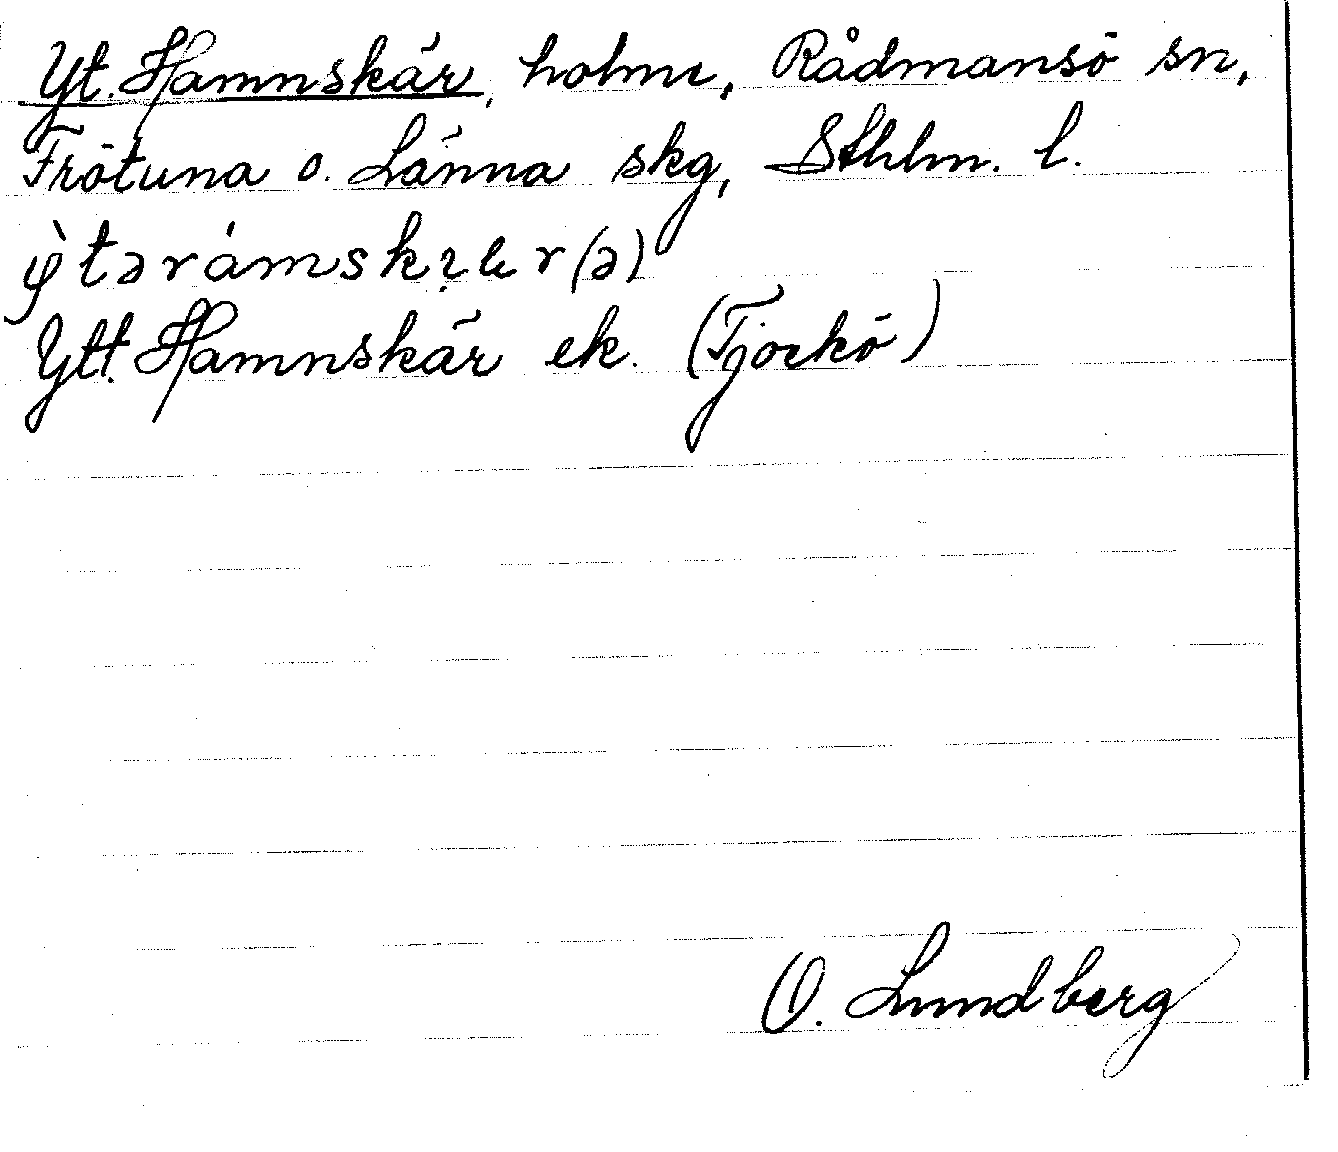 Yt. Hamnskär, holme, Rådmansö sn,
Frötuna o. Länna skg, Sthlm. l.
Ytt. Hamnskär ek. (Tjockö)
O. Lundberg